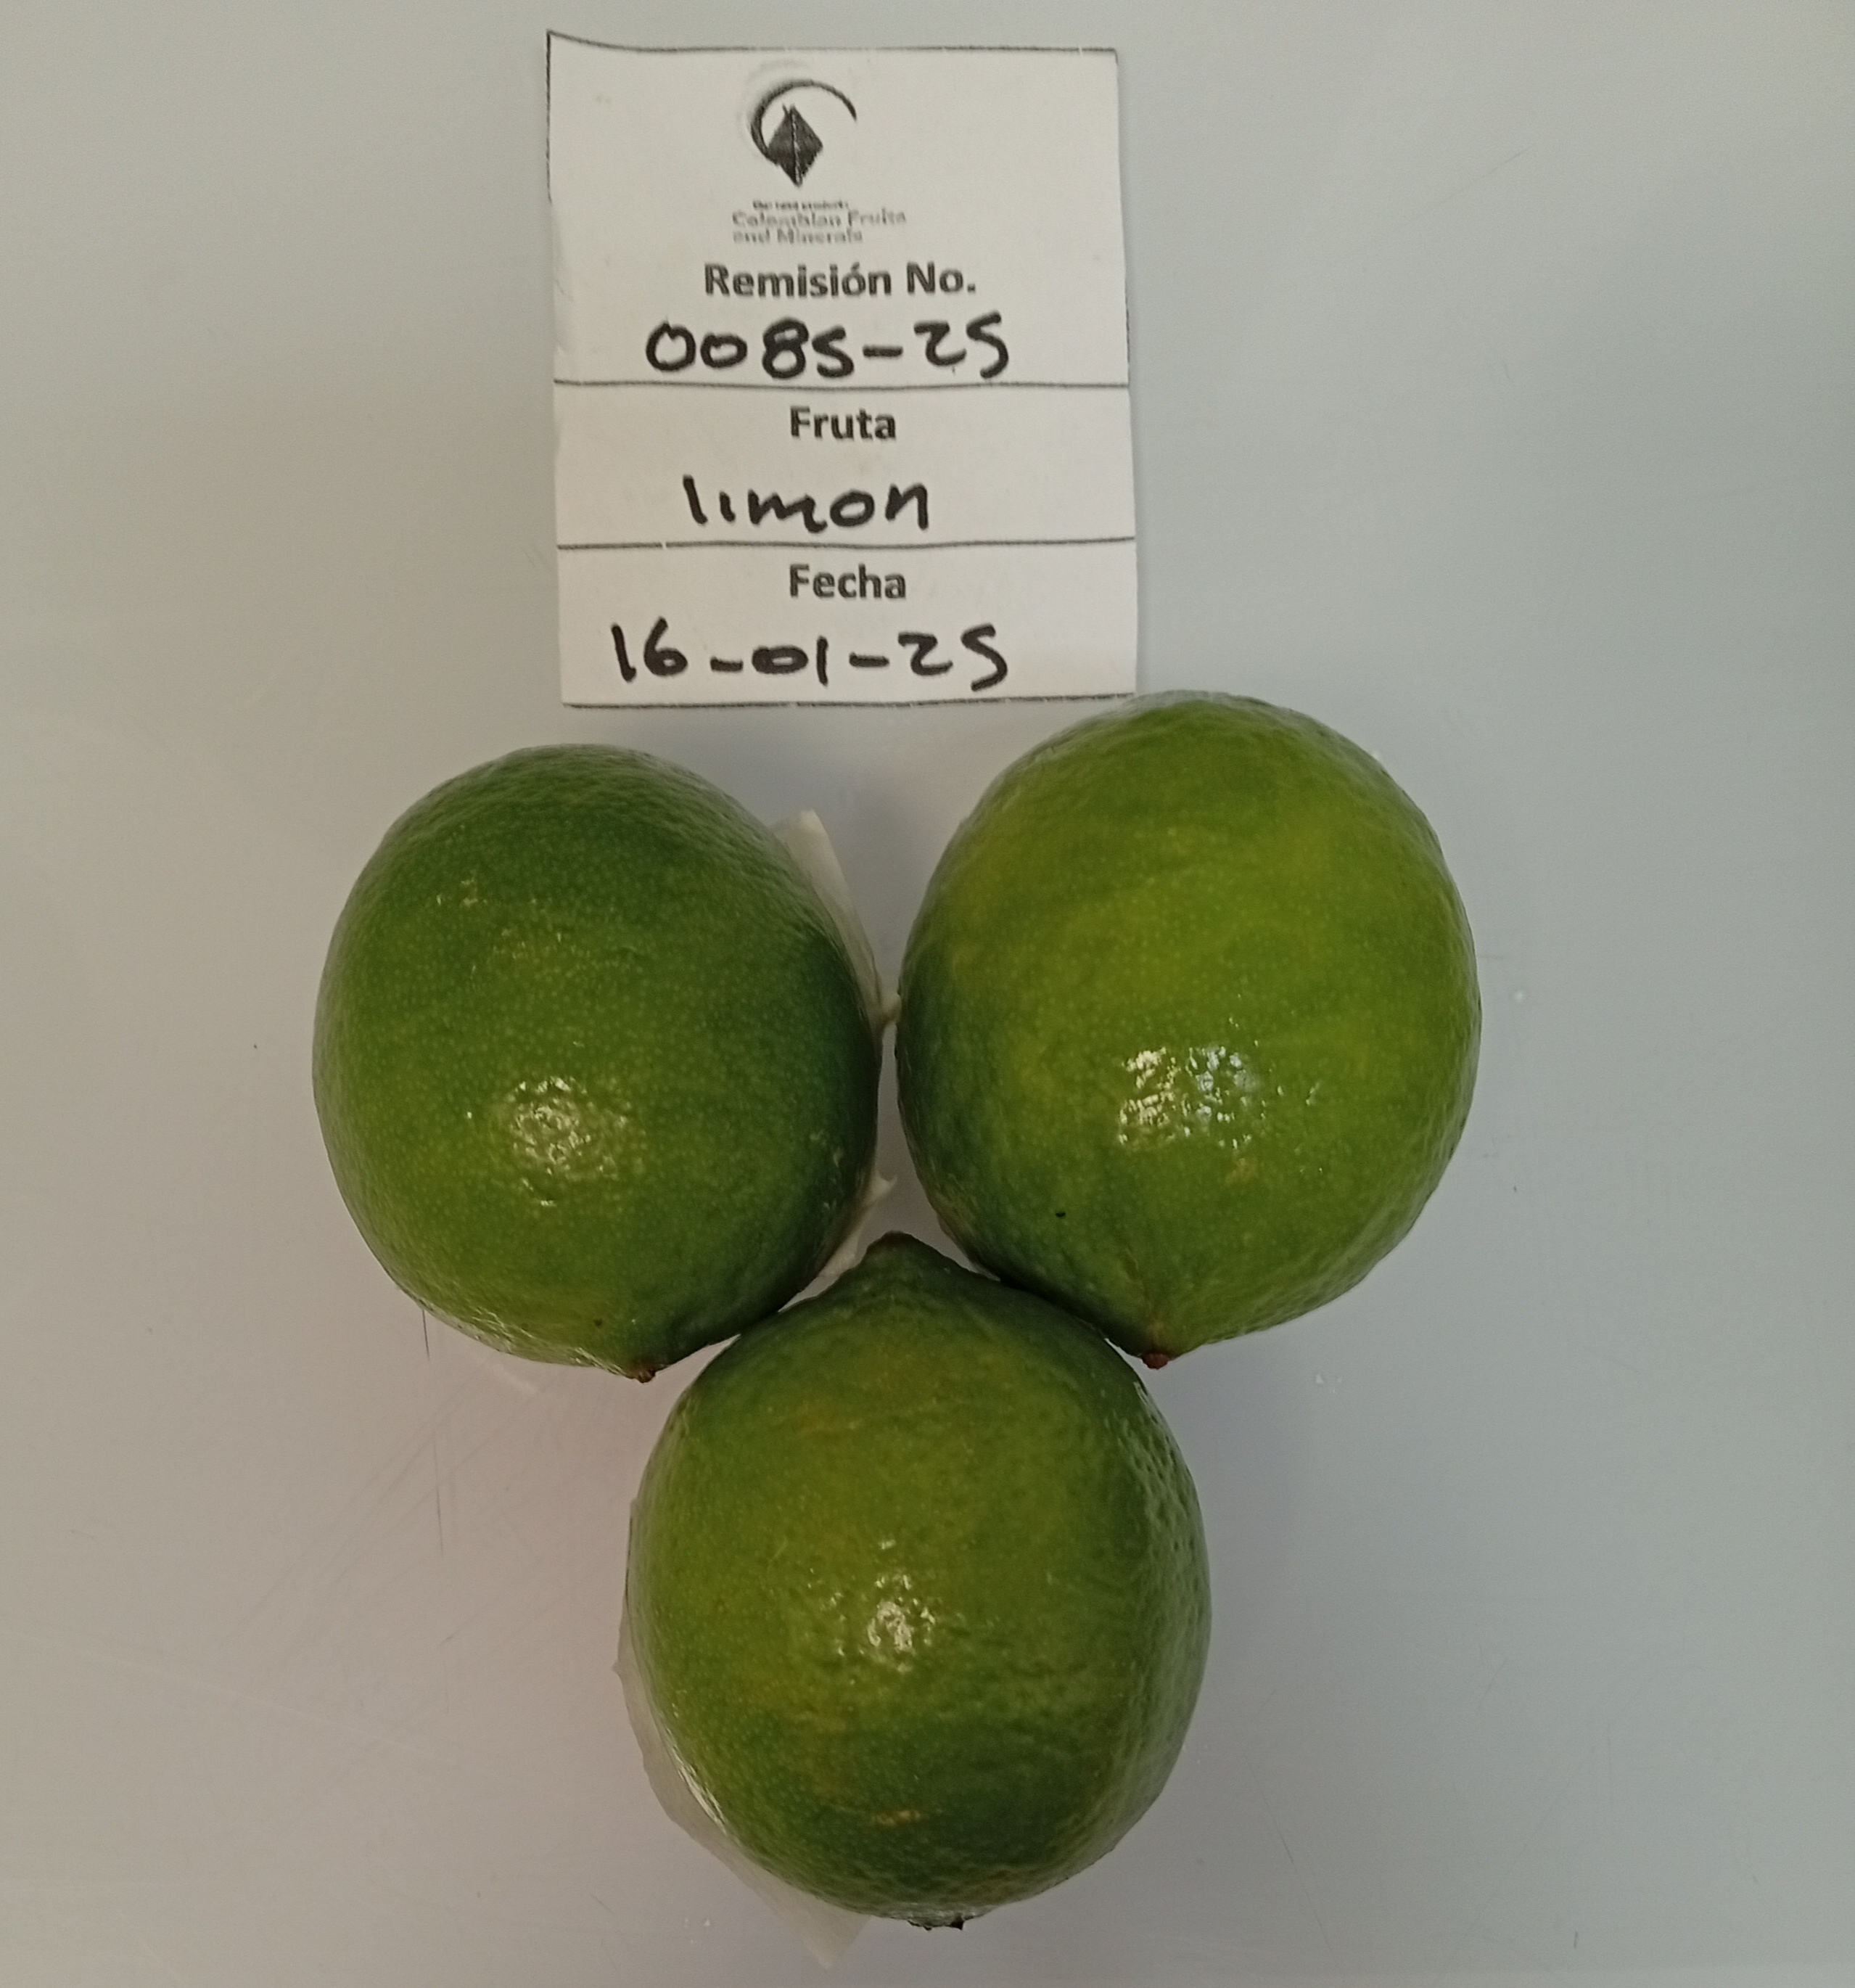 Colombian Fruits
and Minerals
Remisión No.
0085-25
Fruta
limon
Fecha
16-01-25